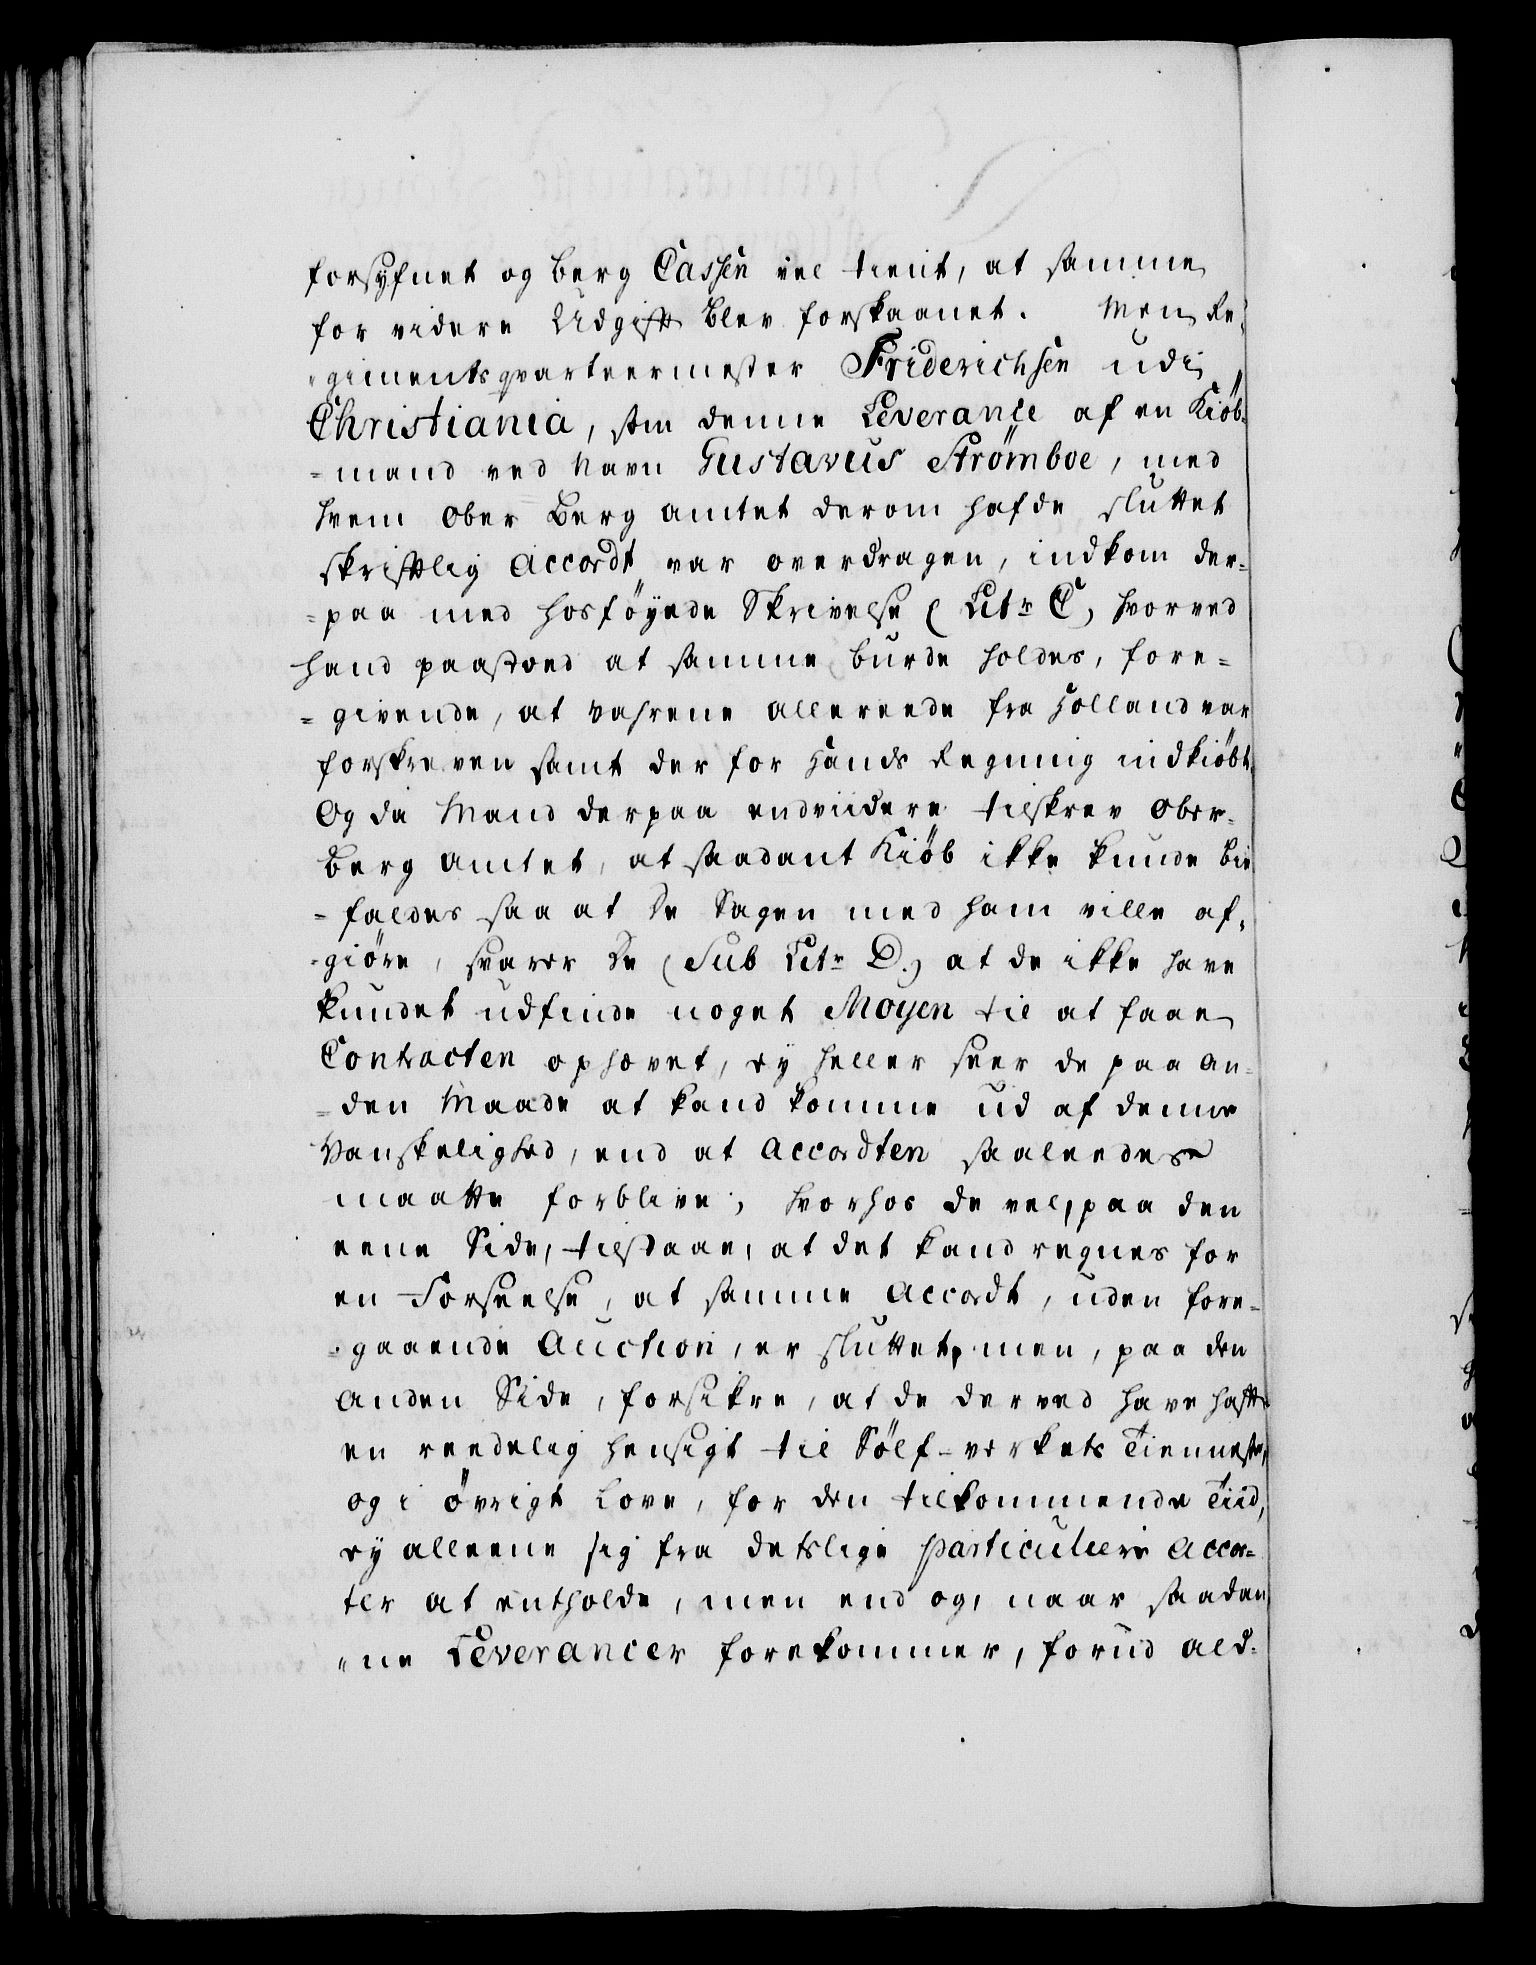 forsyfnet og berg Cassen vel tient, at samme
for videre Udgift blev forskaanet. Men Re-
-gimentsqvarteermester Friderichsen udi
Christiania, som denne Leverance af en Kiöb-
-mand ved Navn Gustavus Strömboe, med
hvem Ober Berg amtet derom hafde sluttet
skriftlig Accordt var overdragen, indkom der-
-paa med hosföyede Skrivelse (Litr C) hvorved
hand paastoed at samme burde holdes, fore-
-givende, at vahrene allereede fra Holland var
forskreven samt der for Hands Regning indkiöbt.
Og da Mand derpaa endviidere tilskrev Ober-
Berg amtet, at saadant Kiöb ikke kunde bie-
-faldes saa at De Sagen med ham ville af-
-giöre, svarer De (Sub Litr D.) at de ikke have
kundet udfinde noget Moyen til at faae
Contracten ophævet, ey heller seer de paa An-
-den Maade at kand komme ud af denne
Vanskelighed, end at Accordten saaleedes
maatte forblive; hvorhos de vel, paa den
eene Side, tilstaae, at det kand regnes for
en Forseelse, at samme Accordt, uden fore-
-gaaende Auction, er sluttet, men, paa den
anden Side, forsikre, at de derved have haft
en reedelig hensigt til Sölf-verkets Tienneste,
og i övrigt Love, for den tilkommende Tiid,
ey alleene sig fra detslige particuliere Accor-
ter at entholde, men end og, naar saadan-
-ne Leverancer forekommer, forud ald-